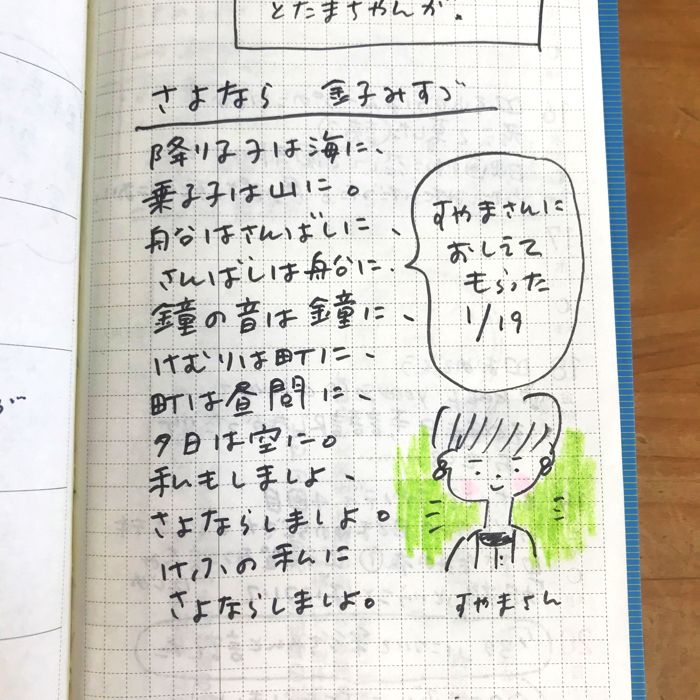 とたまちゃんが。
さよなら 金子みすゞ
降り子は海に、
乗る子は山に。
舟谷はさんばしに、
さんばしは舟谷に。
鐘の音は鐘に、
けむりは町に、
町は昼間に、
夕日は空に。
私もしましよ、
さよならしましよ。
けふの私に
さよならしましよ。
すやまさんに
おしえて
もらった
1/19
すやまさん